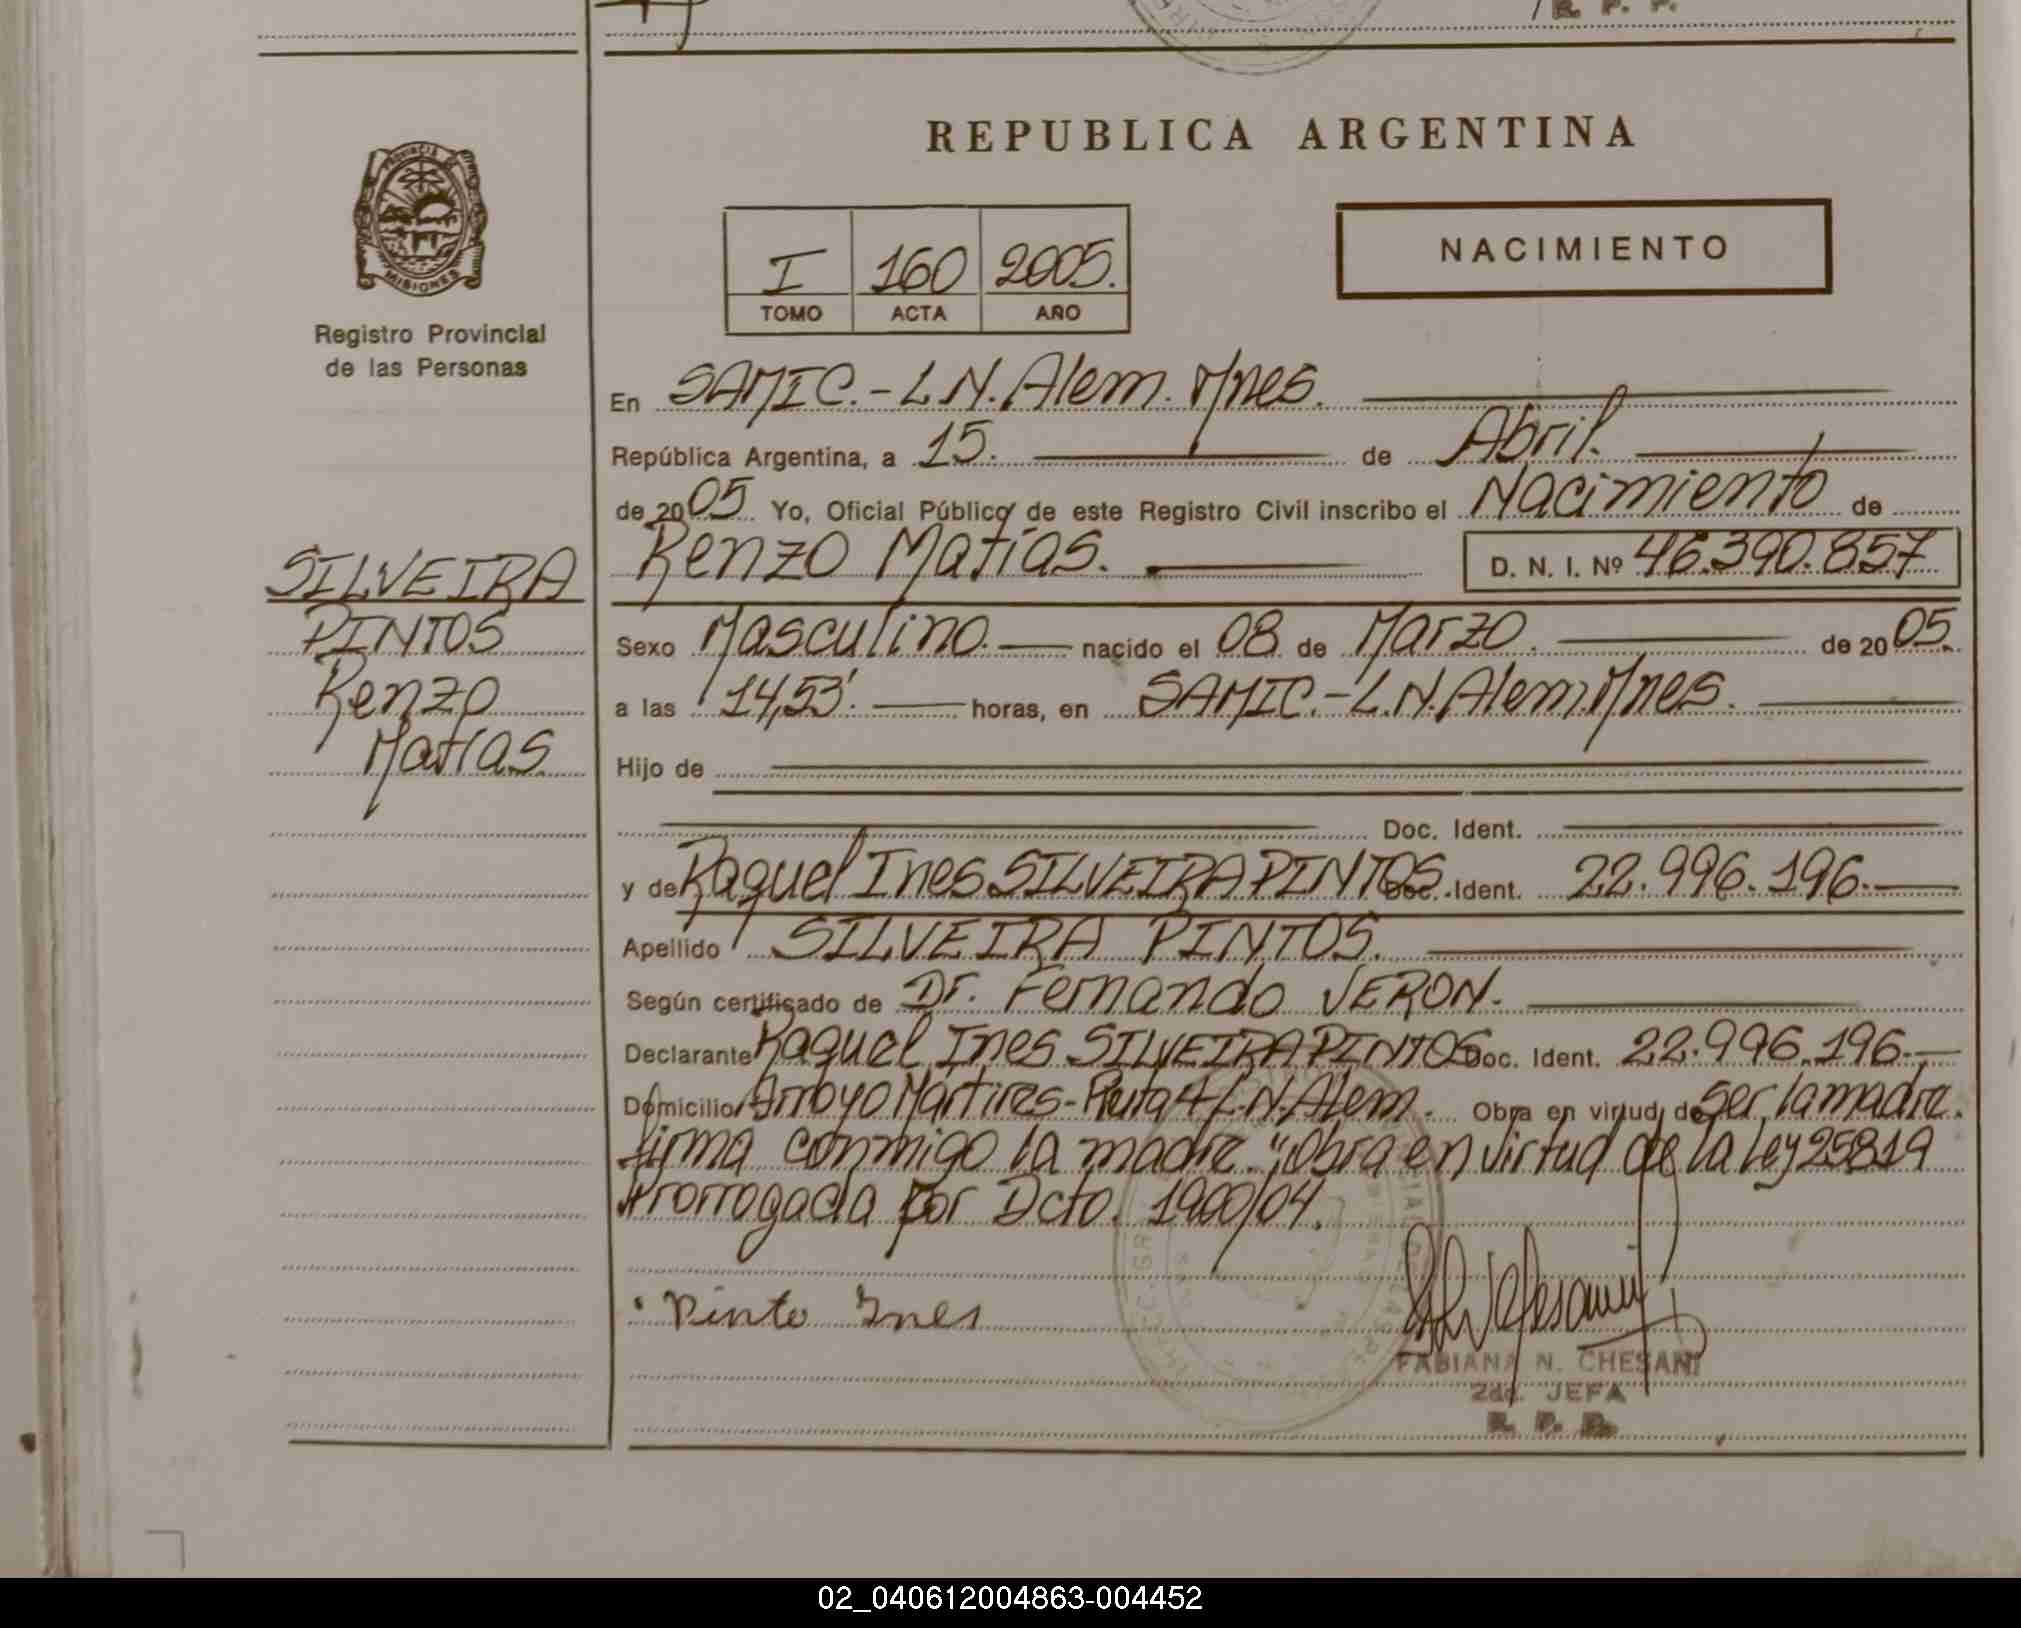 R. P. P.
REPUBLICA ARGENTINA
PROVINCIA DE
MISIONES
Registro Provincial
de las Personas
I 160 2005.
TOMO ACTA AÑO
NACIMIENTO
En SAMIC.-L.N.Alem. Mnes.
República Argentina, a 15. de Abril.
de 2005 Yo, Oficial Público de este Registro Civil inscribo el Nacimiento de
Renzo Matías. D. N. I. Nº 46.390.857
SILVEIRA
PINTOS
Renzo
Matías
Sexo Masculino. nacido el 08 de Marzo. de 2005.
a las 14,53'. horas, en SAMIC.-L.N.Alem.Mnes.
Hijo de
Doc. Ident.
y de Raquel Ines SILVEIRA PINTOS Doc. Ident. 22.996.196.
Apellido SILVEIRA PINTOS.
Según certificado de Dr. Fernando VERON.
Declarante Raquel Ines SILVEIRA PINTOS Doc. Ident. 22.996.196.
Domicilio Arroyo Martires-Ruta 4 L.N.Alem. Obra en virtud de ser la madre.
firma conmigo la madre.":Obra en virtud de la Ley 25819
Prorrogada por Dcto. 1900/04.
Pinto Ines
FABIANA N. CHESANI
2da. JEFA
R. P. P.
02_040612004863-004452